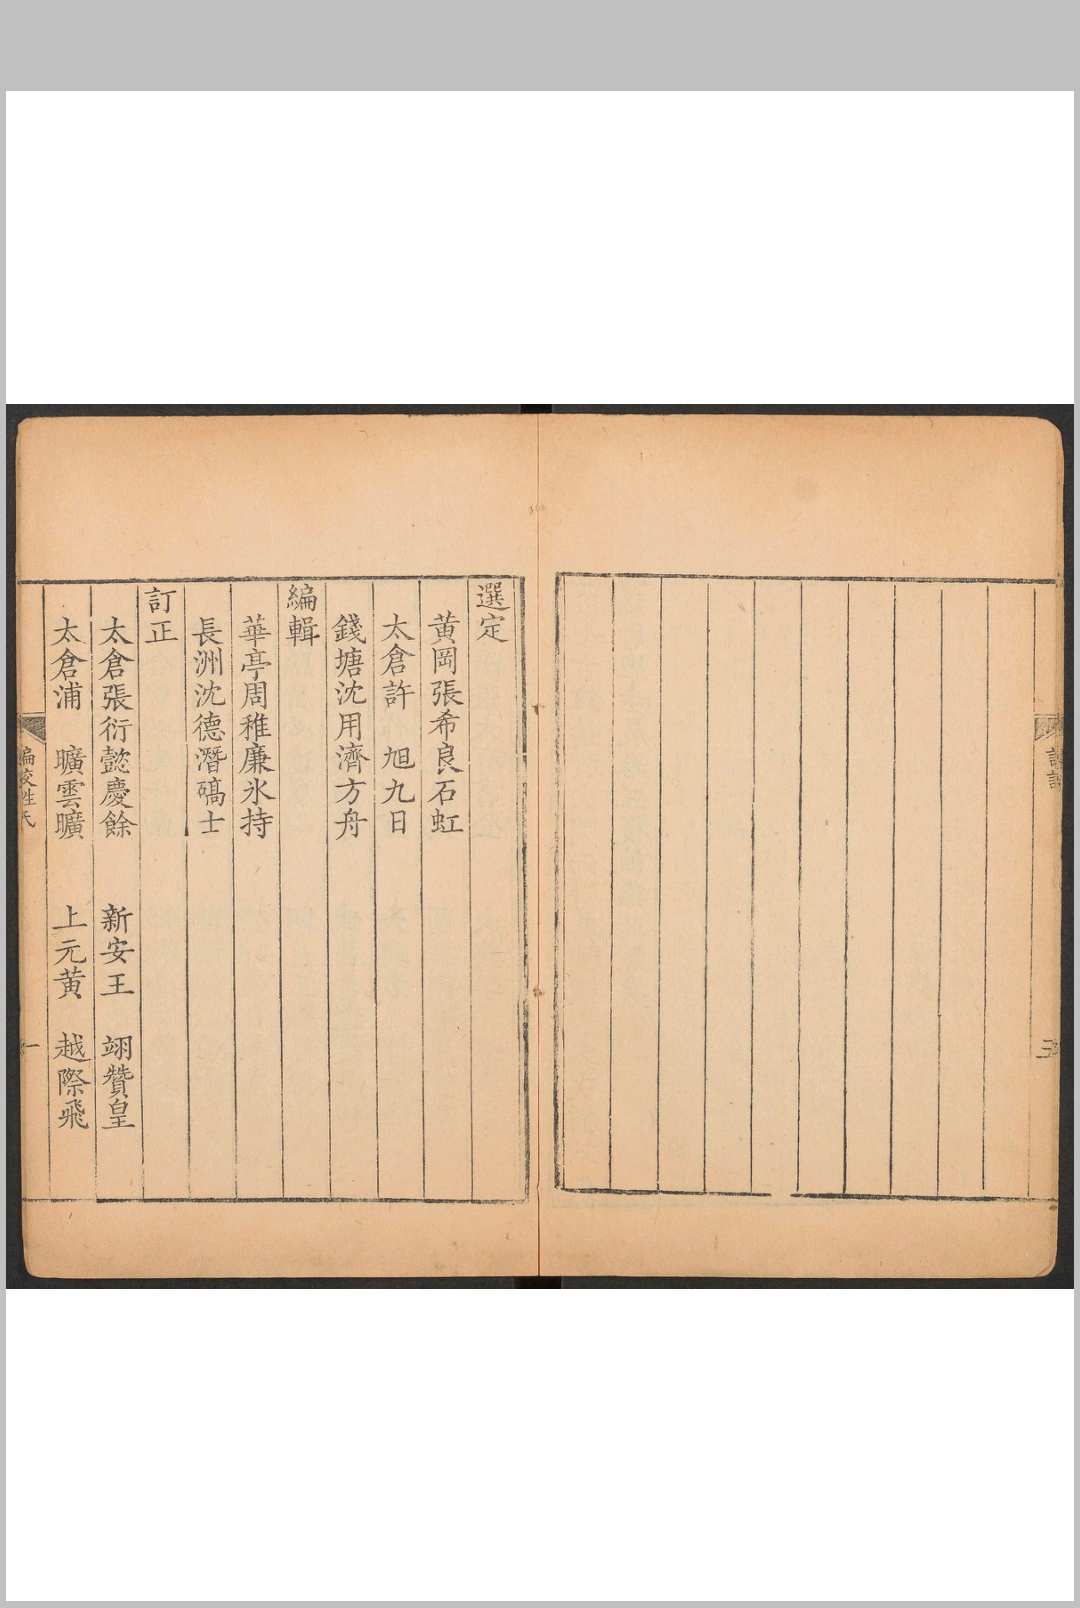 三
選定
黄岡張希良石虹
太倉許　旭九日
錢塘沈用濟方舟
編輯
華亭周稚廉氷持
長洲沈德潛碻士
訂正
太倉張衍懿慶餘　新安王　翊贊皇
太倉浦　曠雲曠　上元黄　越際飛
編校姓氏
一